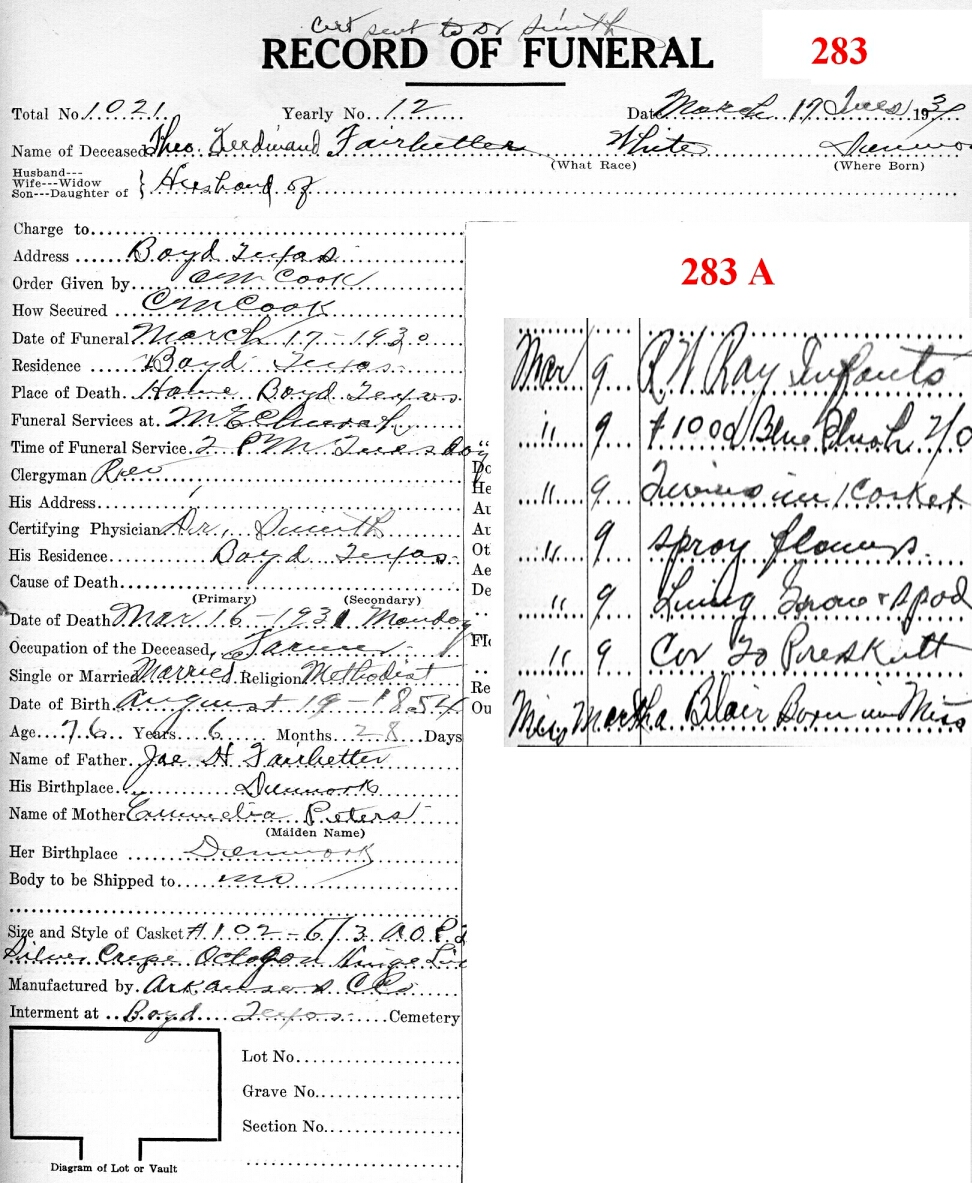 Cert sent to Dr Smith
RECORD OF FUNERAL
283
Total No. 1021 Yearly No. 12 Date March 17 Tues 193
Name of Deceased Theo. Ferdinand Fairbetter White
(What Race) (Where Born)
Husband---
Wife---Widow
Son---Daughter of } Husband of
Charge to
Address Boyd Texas
Order Given by CM Cook
How Secured CM Cook
Date of Funeral March 17-1930
Residence Boyd Texas
Place of Death Home Boyd Texas
Funeral Services at M E Church
Time of Funeral Service 2 PM Tuesday
Clergyman Rev
His Address
Certifying Physician Dr. Smith
His Residence Boyd Texas
Cause of Death
(Primary) (Secondary)
Date of Death Mar 16-1931 Monday
Occupation of the Deceased, Farmer
Single or Married Married Religion Methodist
Date of Birth August 19-1854
Age 76 Years 6 Months 28 Days
Name of Father Joe H Fairbetter
His Birthplace Denmark
Name of Mother Emmelia Peters
(Maiden Name)
Her Birthplace Denmark
Body to be Shipped to no
Size and Style of Casket #102-6/3
Silver Crepe Octagon Hinge
Manufactured by Arkansas C Co
Interment at Boyd Texas Cemetery
Lot No.
Grave No.
Section No.
Diagram of Lot or Vault
Do
He
Au
Au
Ot
Ae
De
Flo
Re
Ou
283 A
Mar 9 R W Ray Infants
" 9 Blue Plush 2/0
" 9 Twins in 1 Casket
" 9 Spray flowers
" 9
" 9
Martha Blair Born in Miss